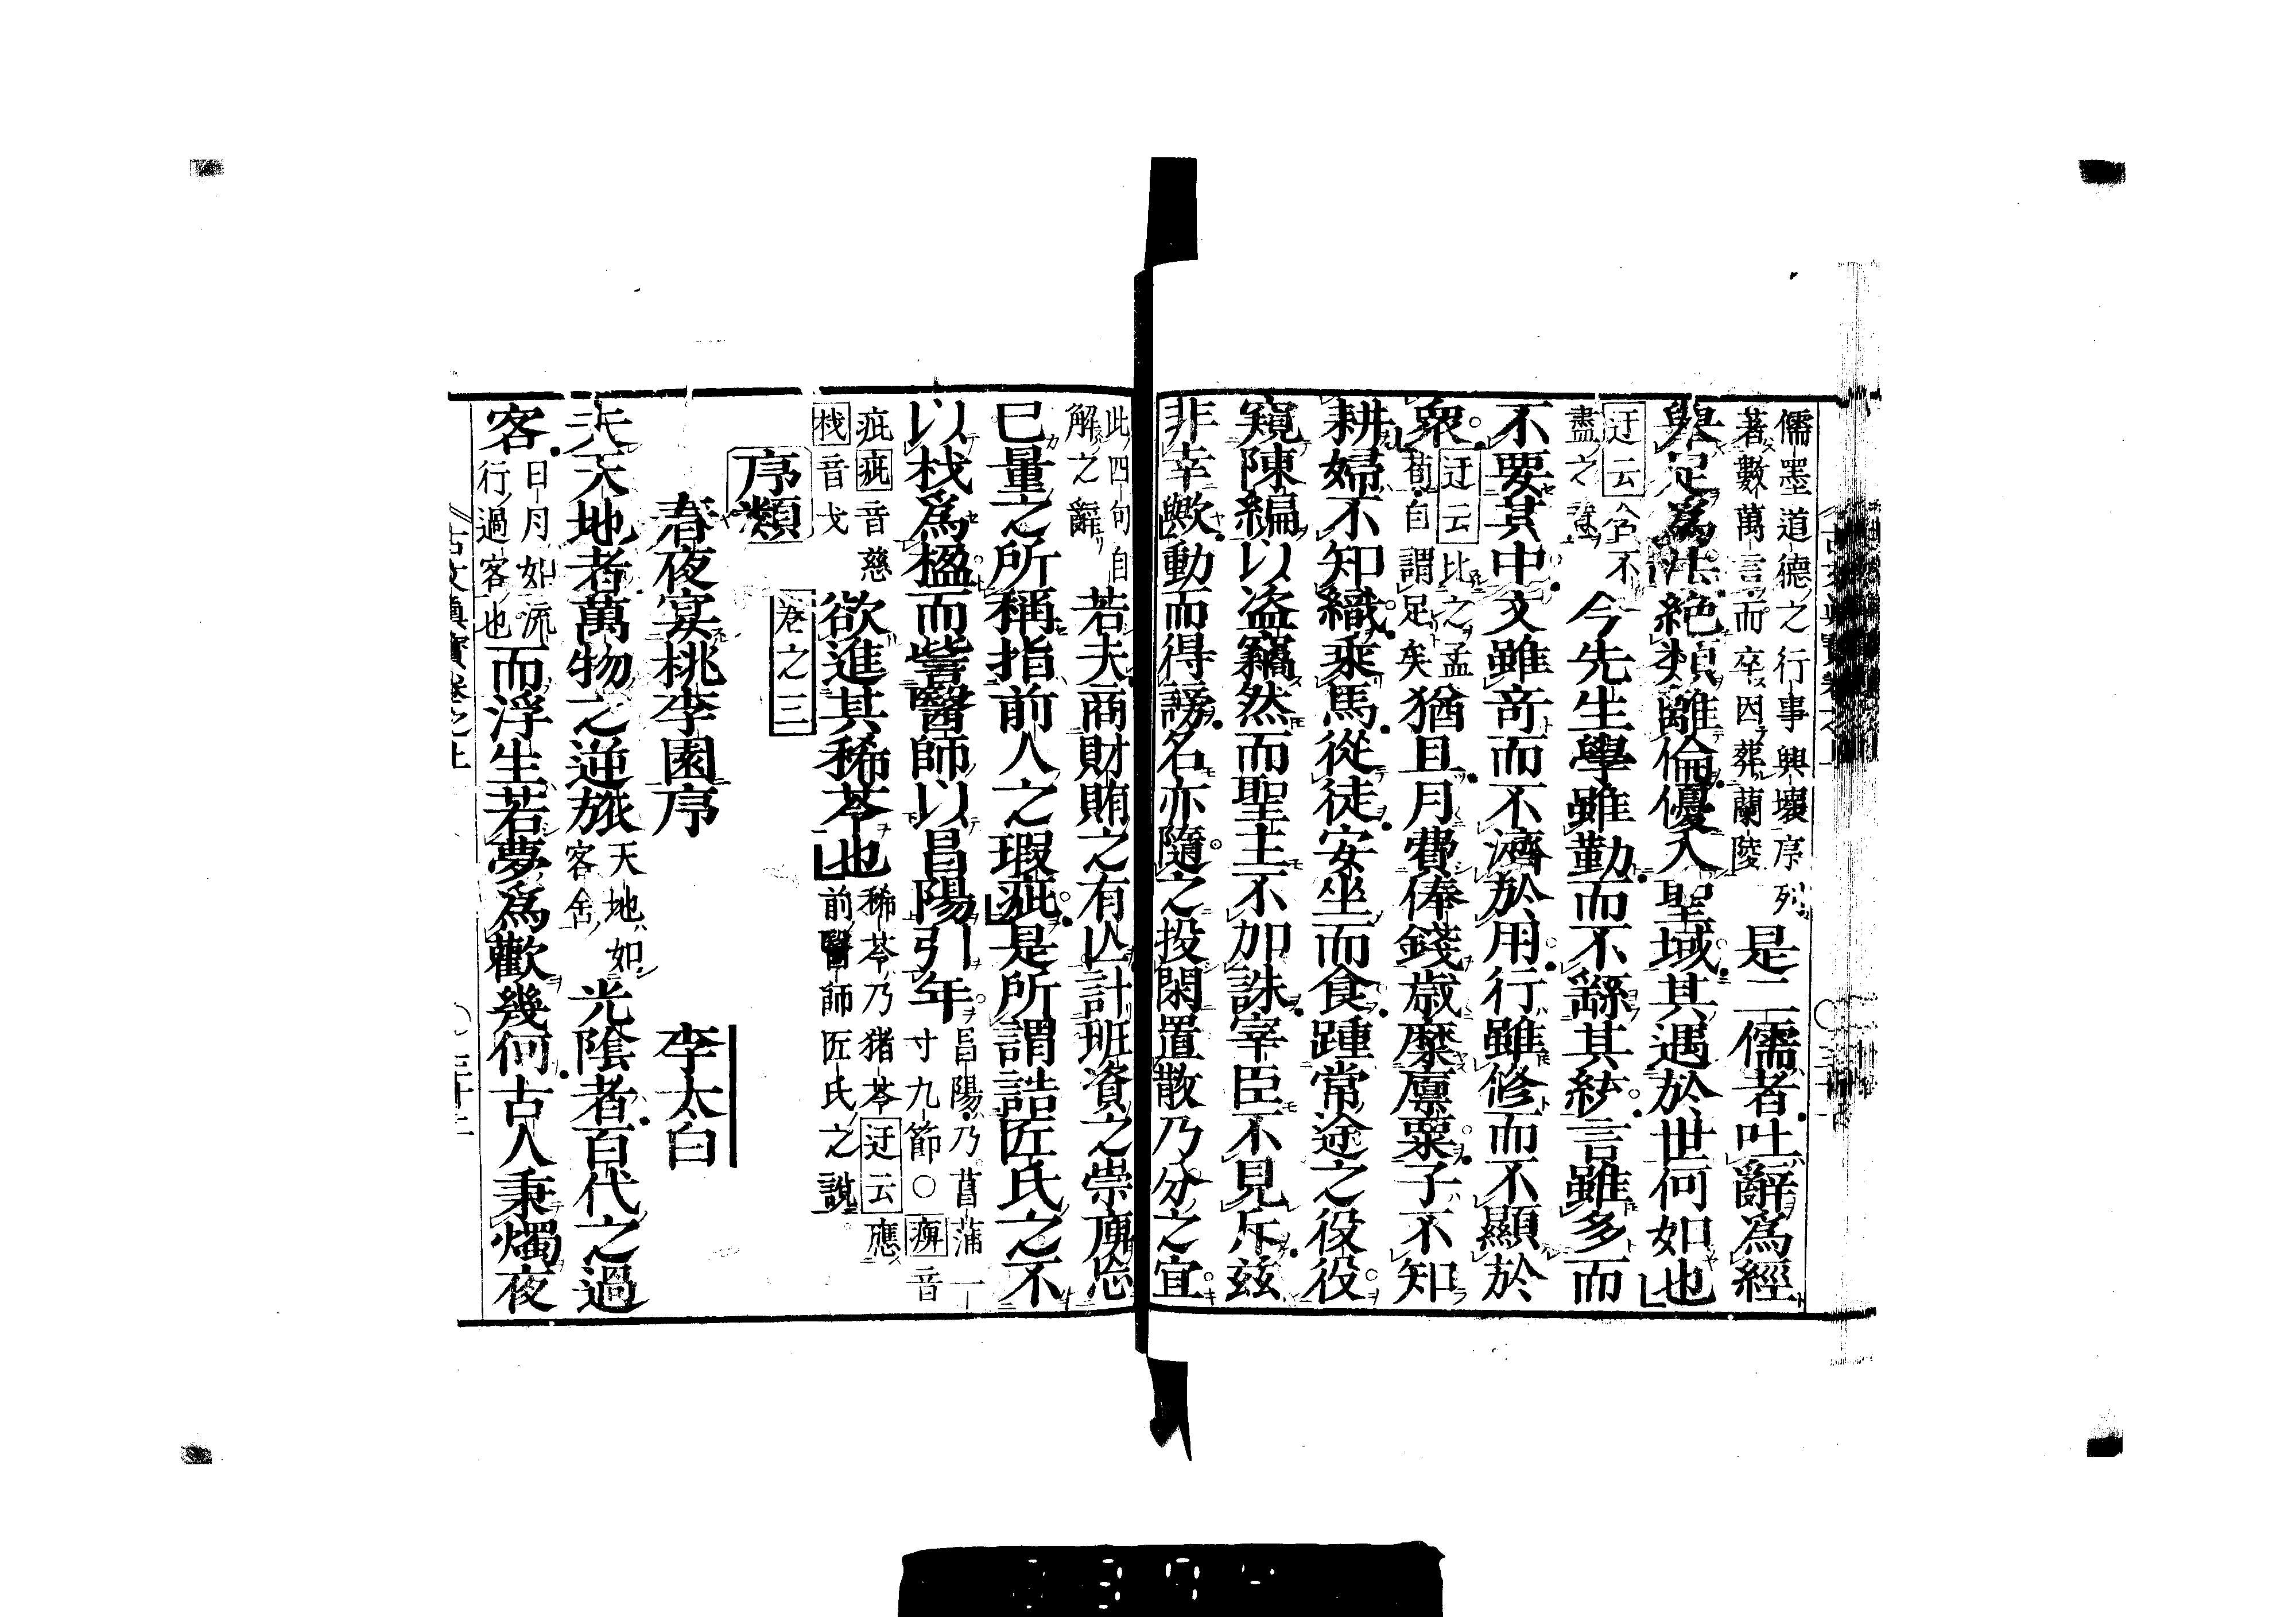 儒墨道德之行事興壞序列
著數萬言而卒因葬蘭陵
是二儒者吐辭爲經
舉足爲法絶類離倫優入聖域其遇於世何如也
迂云含不
盡之意
今先生學雖勤而不繇其統言雖多而
不要其中文雖奇而不濟於用行雖修而不顯於
衆
迂云比之孟
荀自謂足矣
猶且月費俸錢歲糜廪粟子不知
耕婦不知織乘馬從徒安坐而食踵常途之役役
窺陳編以盗竊然而聖主不加誅宰臣不見斥兹
非幸歟動而得謗名亦隨之投閑置散乃分之宜
此四句自
解之辭
若夫商財賄之有亾計班資之崇庳忘
已量之所稱指前人之瑕疵是所謂詰匠氏之不
以杙爲楹而訾醫師以昌陽引年
昌陽乃菖蒲一
寸九節○痺音
疵疵音慈
杙音弋
欲進其稀苓也
稀苓乃猪苓迂云應
前醫師匠氏之說
卷之三
序類
春夜宴桃李園序 李太白
夫天地者萬物之逆旅
天地如
客舍
光陰者百代之過
客
日月如流
行過客也
而浮生若夢爲歡幾何古人秉燭夜
古文眞寶卷之上